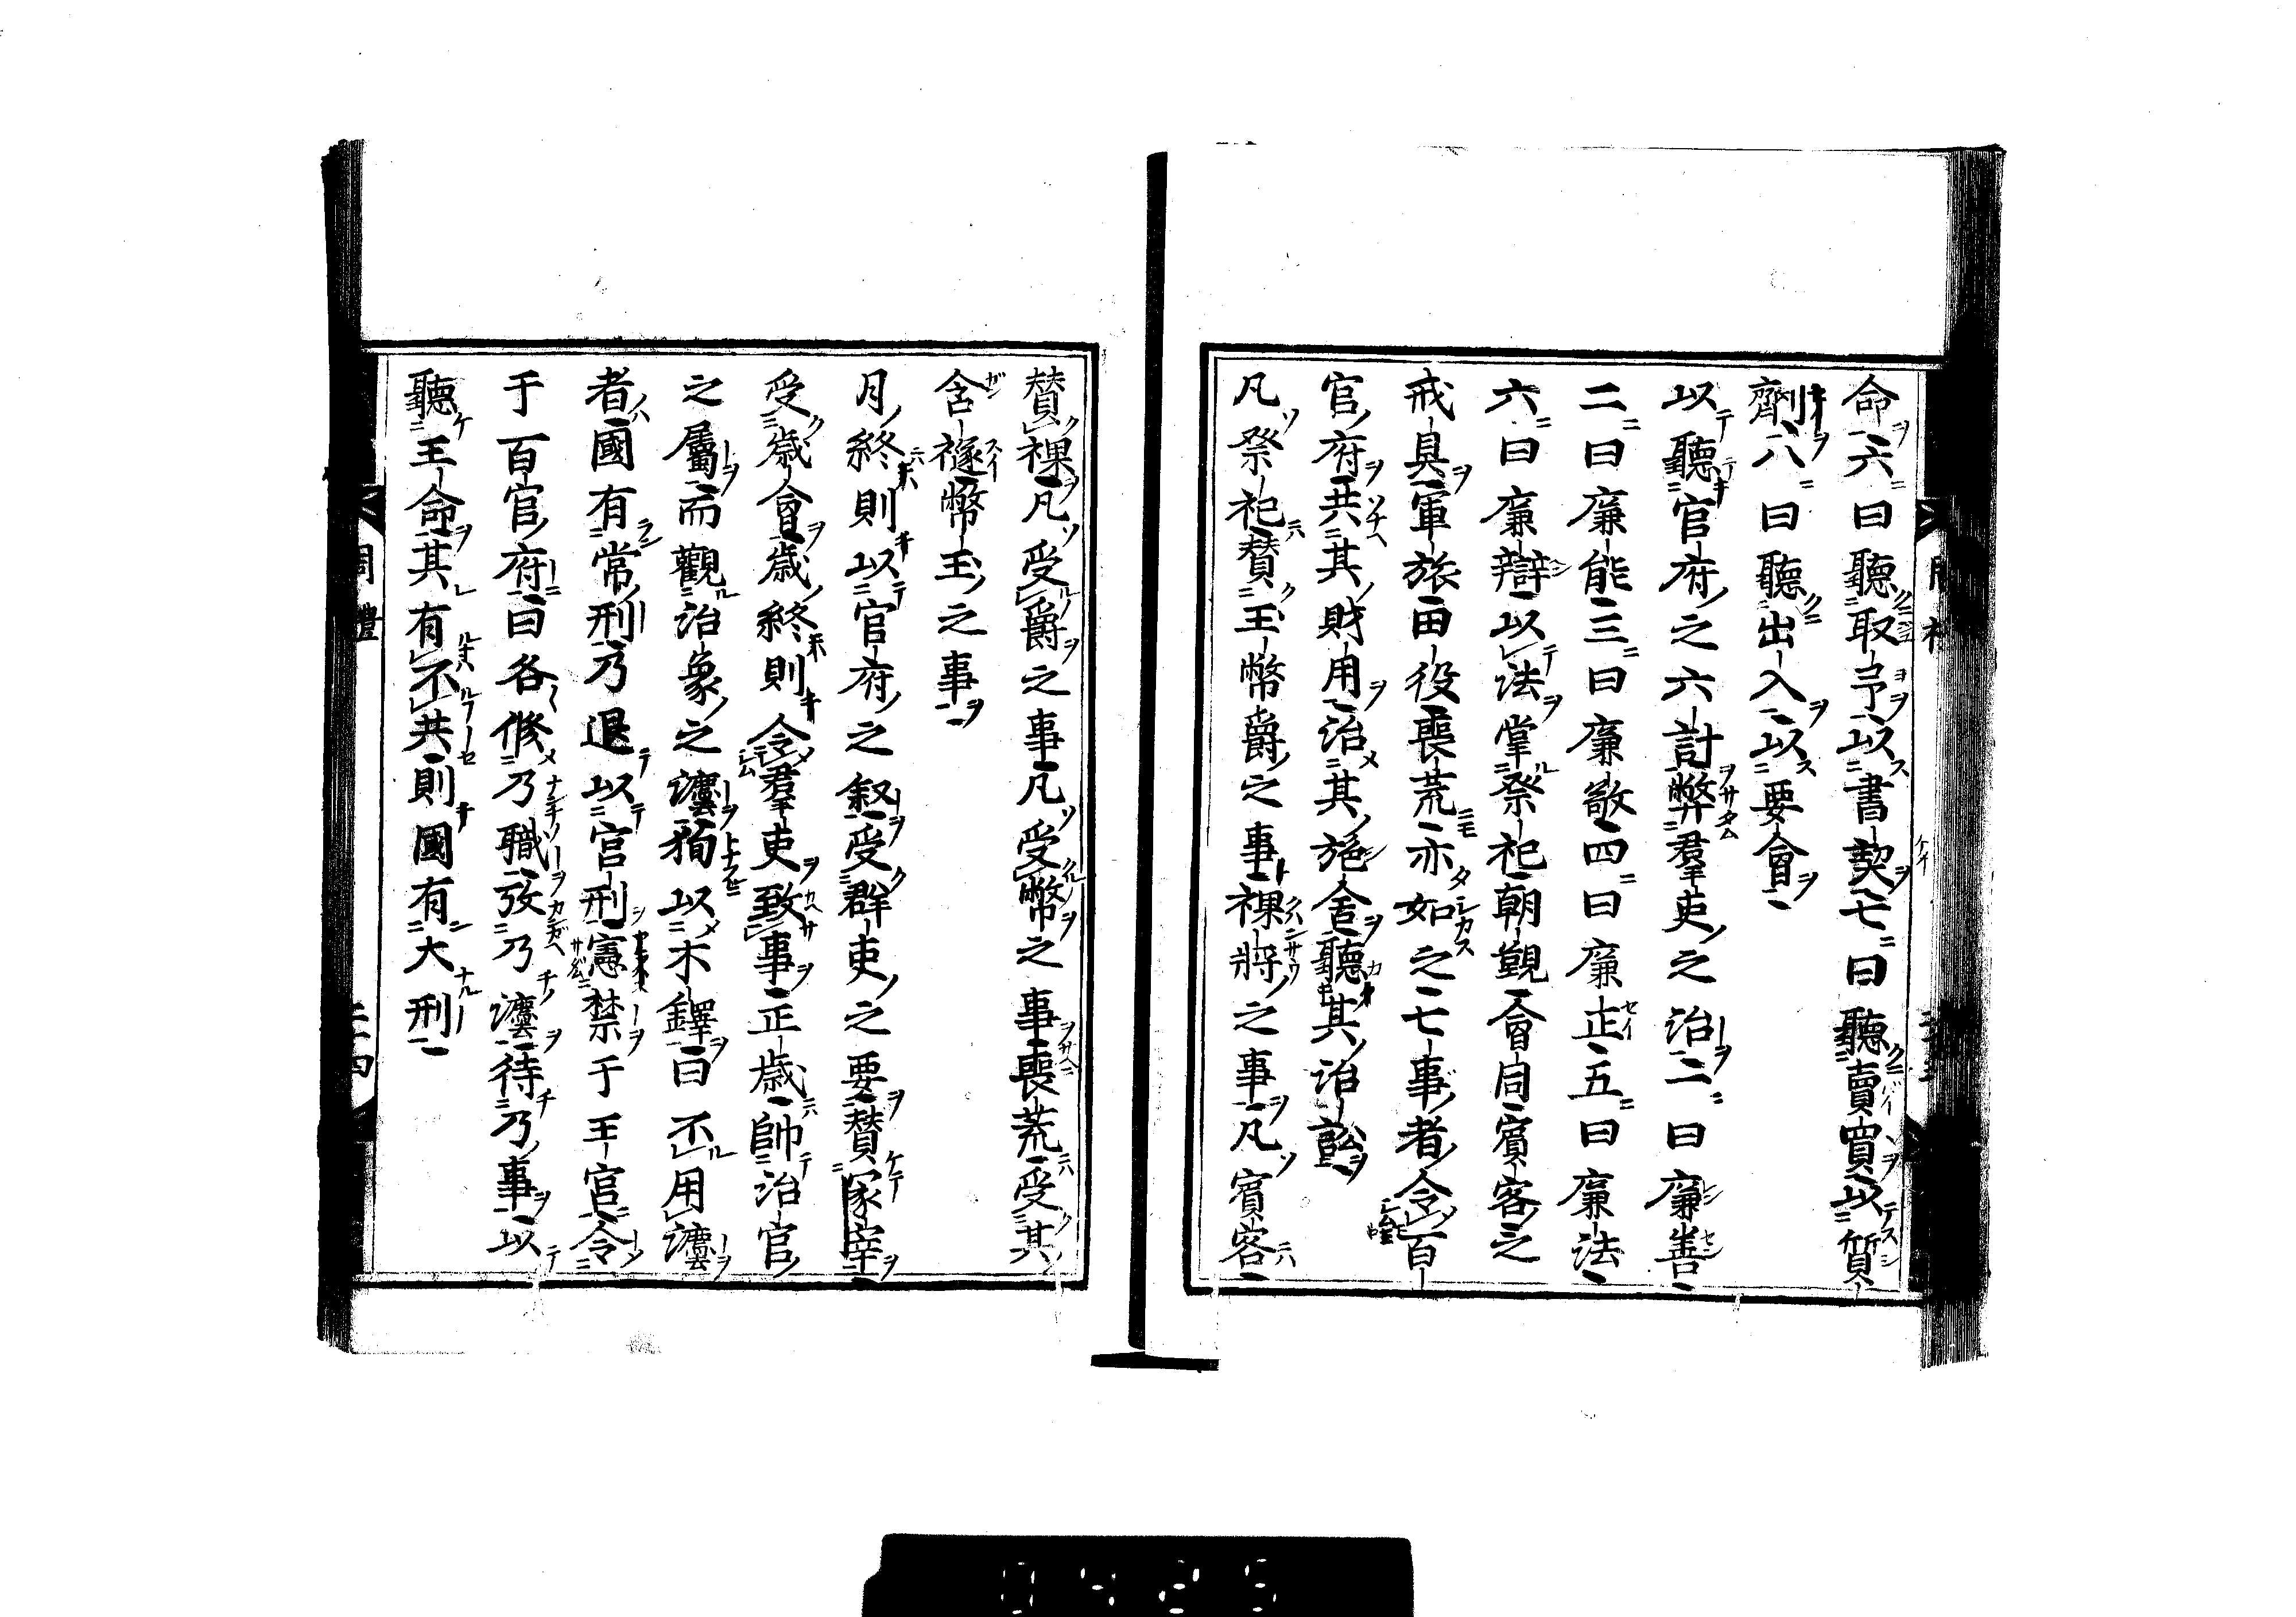 命六曰聽取予以書契七曰聽賣買以質
劑八曰聽出入以要會
以聽官府之六計弊羣吏之治二曰廉善
二曰廉能三曰廉敬四曰廉正五曰廉法
六曰廉辯以法掌祭祀朝覲會同賓客之
戒具軍旅田役喪荒亦如之七事者令百
官府共其財用治其施舍聽其治訟
凡祭祀贊玉幣爵之事祼將之事凡賓客
贊祼凡受爵之事凡受幣之事喪荒受其
含襚幣玉之事
月終則以官府之叙受群吏之要贊冢宰
受歳會歳終則令羣吏致事正歳帥治官
之屬而觀治象之灋徇以木鐸曰不用灋
者國有常刑乃退以官刑憲禁于王官令
于百官府曰各修乃職攷乃灋待乃事以
聽王命其有不共則國有大刑
周禮
0425